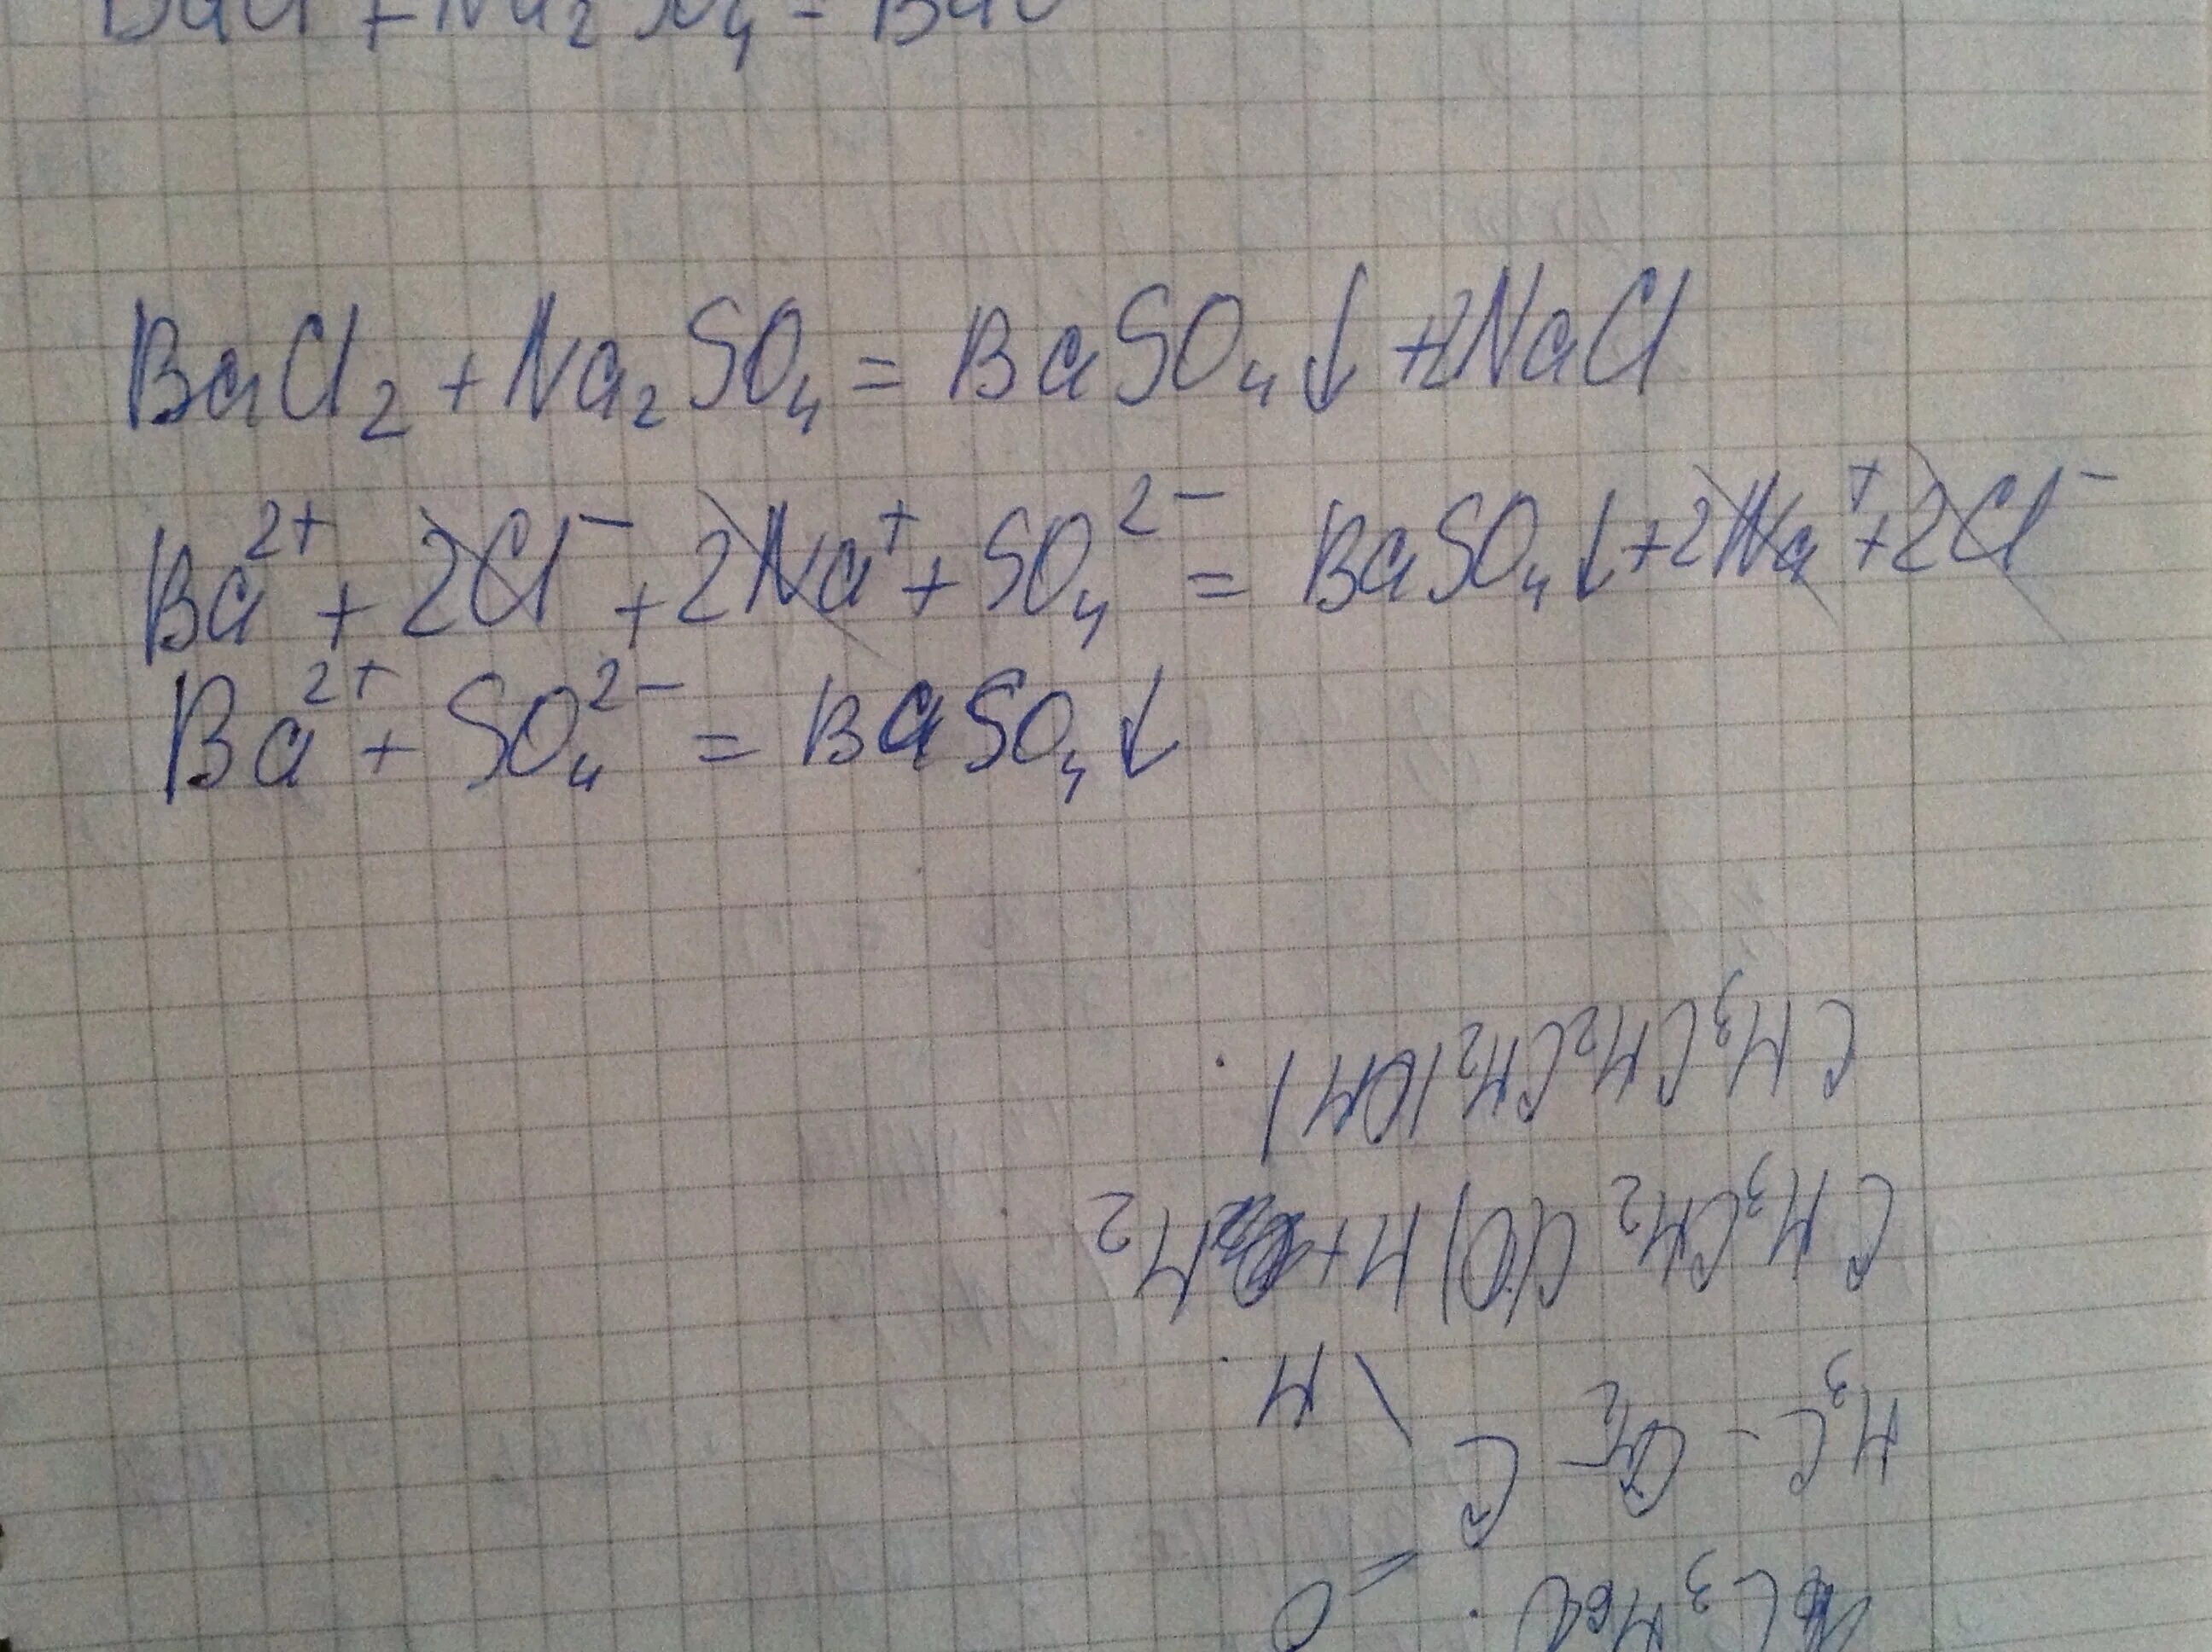 BaCl + Na₂SO₄ = BaC
BaCl₂ + Na₂SO₄ = BaSO₄↓ + 2NaCl
Ba²⁺ + 2Cl⁻ + 2Na⁺ + SO₄²⁻ = BaSO₄↓ + 2Na⁺ + 2Cl⁻
Ba²⁺ + SO₄²⁻ = BaSO₄↓
CH₃CH₂CH₂(OH)
CH₃CH₂C(O)H + H₂
H₃C - CH₂ - C
H
O